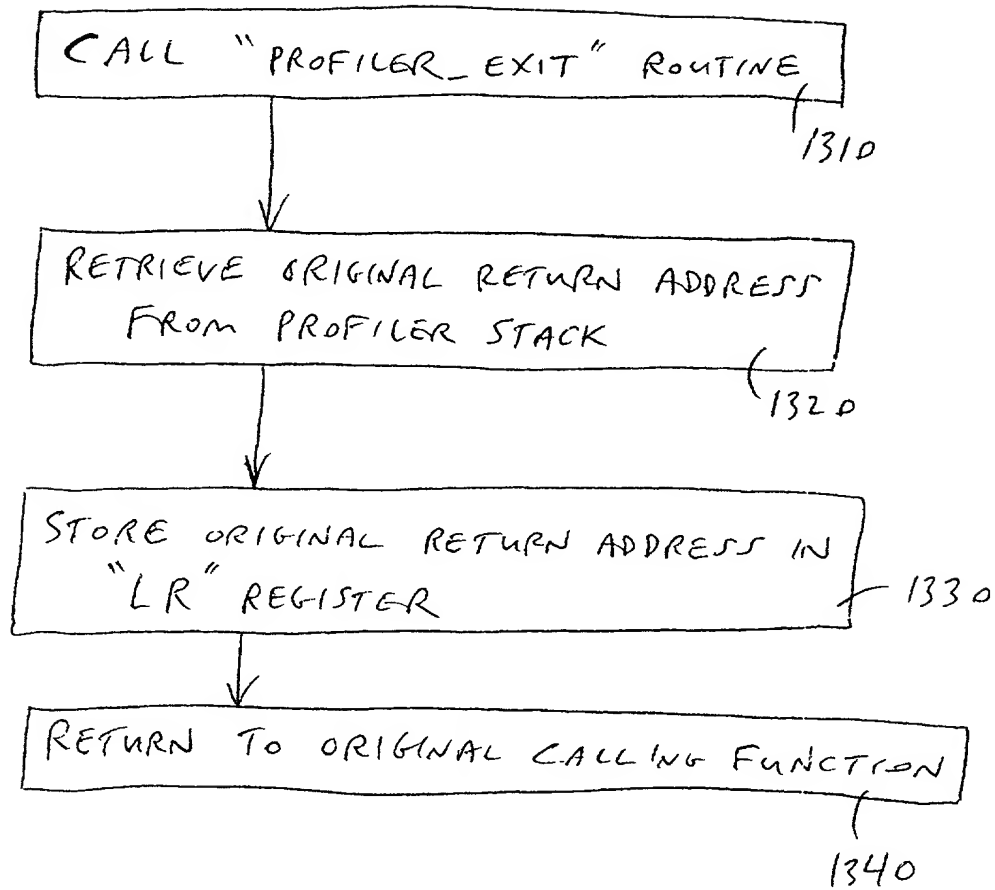 CALL "PROFILER_EXIT" ROUTINE
1310
RETRIEVE ORIGINAL RETURN ADDRESS
FROM PROFILER STACK
1320
STORE ORIGINAL RETURN ADDRESS IN
"LR" REGISTER
1330
RETURN TO ORIGINAL CALLING FUNCTION
1340